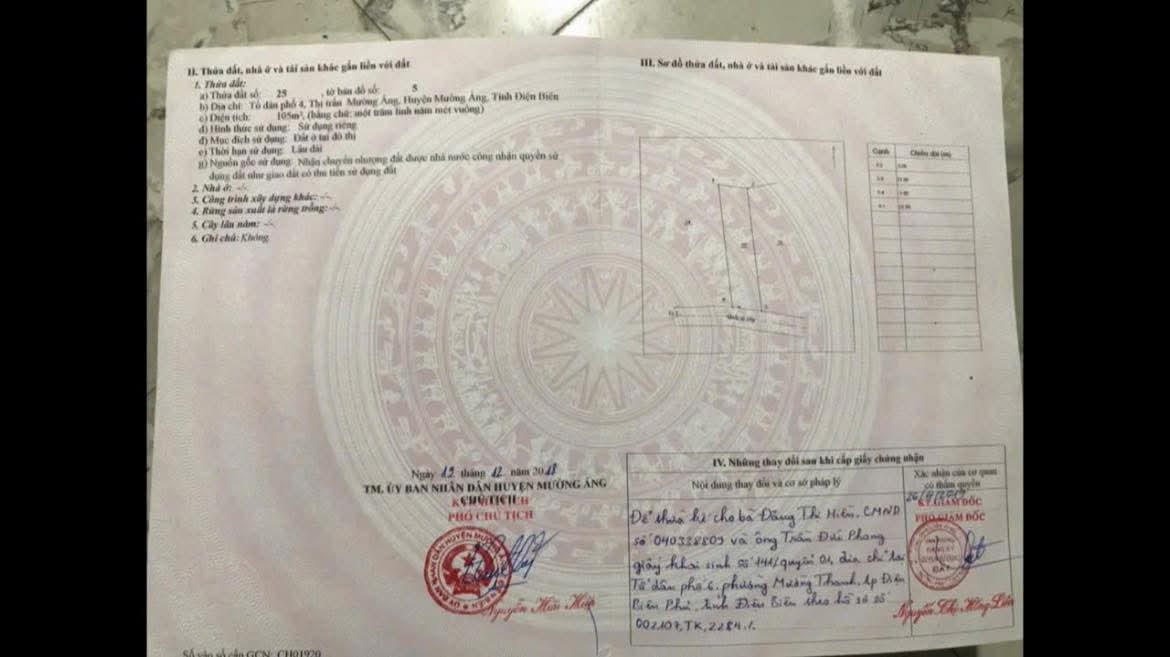 II. Thửa đất, nhà ở và tài sản khác gắn liền với đất
1. Thửa đất:
a) Thửa đất số: 25 , tờ bản đồ số: 5
b) Địa chỉ: Tổ dân phố 4, Thị trấn Mường Ảng, Huyện Mường Ảng, Tỉnh Điện Biên
c) Diện tích: 105m², (bằng chữ: một trăm linh năm mét vuông)
d) Hình thức sử dụng: Sử dụng riêng
đ) Mục đích sử dụng: Đất ở tại đô thị
e) Thời hạn sử dụng: Lâu dài
g) Nguồn gốc sử dụng: Nhận chuyển nhượng đất được nhà nước công nhận quyền sử
dụng đất như giao đất có thu tiền sử dụng đất
2. Nhà ở: -/-
3. Công trình xây dựng khác: -/-
4. Rừng sản xuất là rừng trồng: -/-
5. Cây lâu năm: -/-
6. Ghi chú: Không
III. Sơ đồ thửa đất, nhà ở và tài sản khác gắn liền với đất
Cạnh Chiều dài (m)
Ngày 19 tháng 12 năm 2018
TM. ỦY BAN NHÂN DÂN HUYỆN MƯỜNG ẢNG
CHỦ TỊCH
PHÓ CHỦ TỊCH
Nguyễn Hữu Hiệp
Số vào sổ cấp GCN: CH01920
IV. Những thay đổi sau khi cấp giấy chứng nhận
Nội dung thay đổi và cơ sở pháp lý
Xác nhận của cơ quan
có thẩm quyền
KT GIÁM ĐỐC
PHÓ GIÁM ĐỐC
Để thừa kế cho bà Đặng Thị Hiên, CMND
số 040338809 và ông Trần Đức Phong
giấy khai sinh số 141/quyển 01, địa chỉ tại
Tổ dân phố 6, phường Mường Thanh, tp Điện
Biên Phủ, tỉnh Điện Biên theo hồ sơ số
002107.TK.2284./.
Nguyễn Thị Hồng Liên